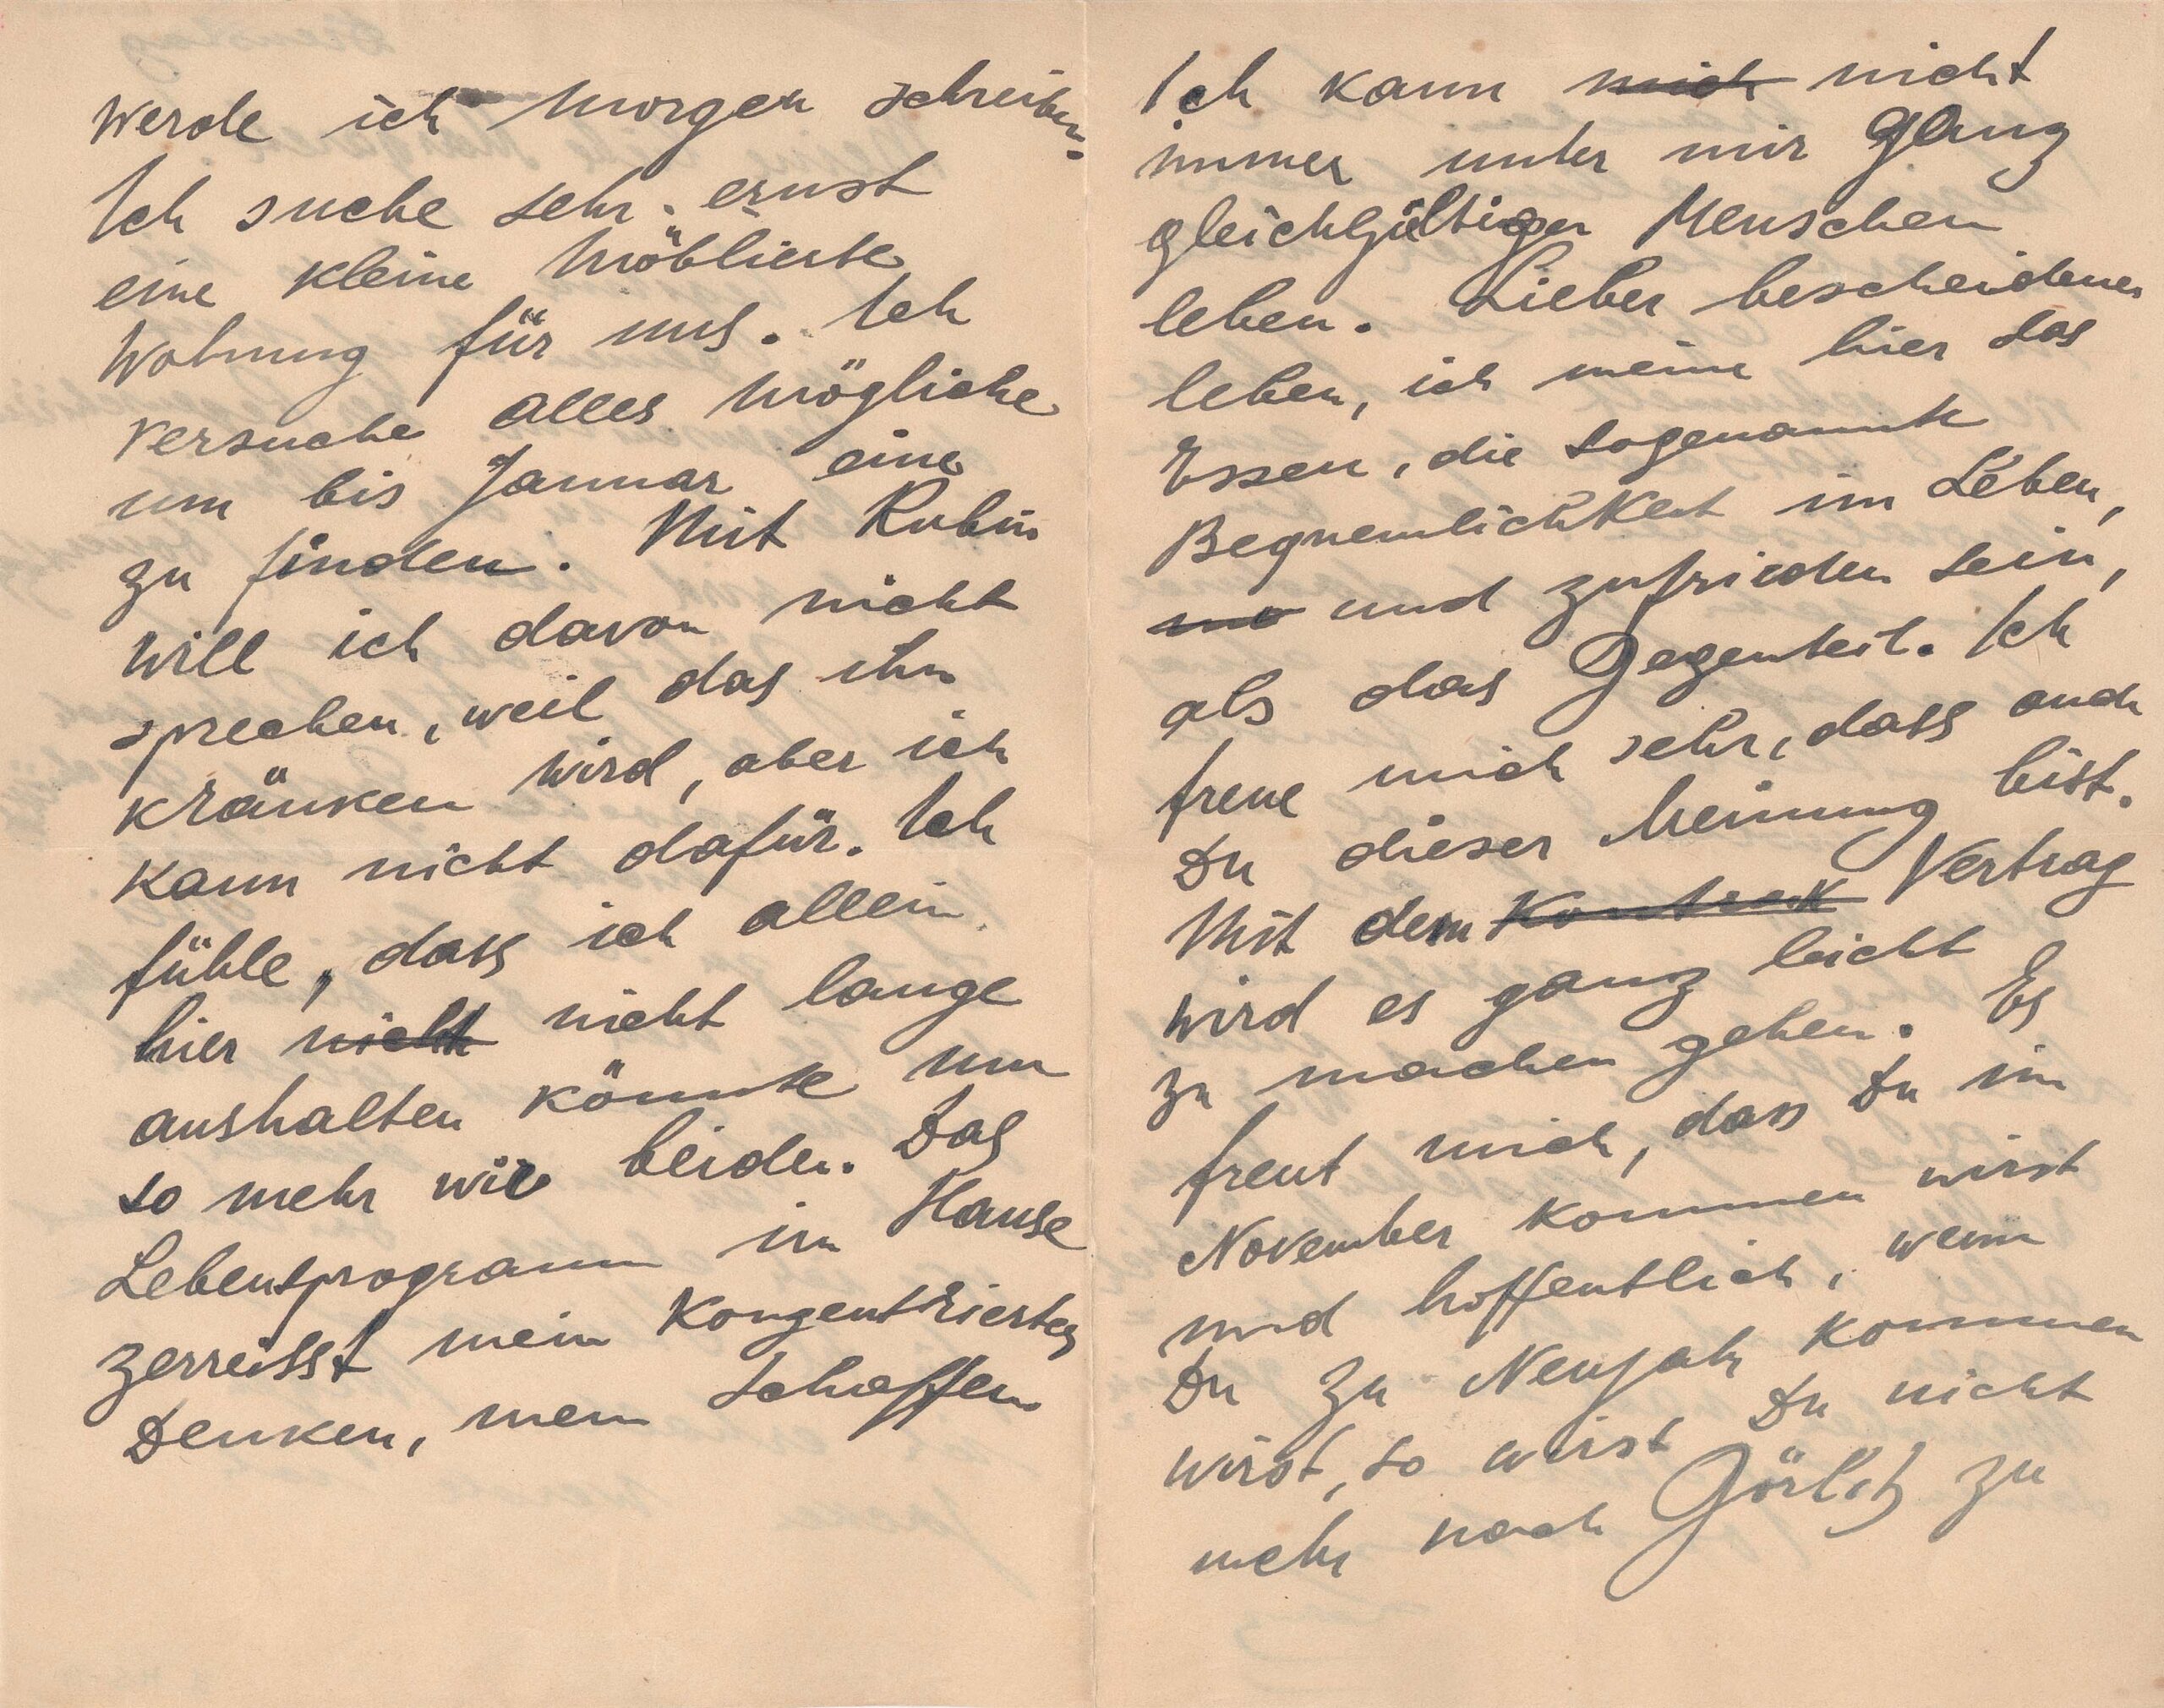 werde ich morgen schreiben.
Ich suche sehr ernst
eine kleine möblierte
Wohnung für uns. Ich
versuche alles mögliche
um bis Januar eine
zu finden. Mit Rubin
will ich davon nicht
sprechen, weil das ihn
kränken wird, aber ich
kann nicht dafür. Ich
fühle, dass ich allein
hier nicht nicht lange
aushalten könnte um
so mehr wie beiden. Das
Lebensprogramm im Hause
zerreisst mein Konzentriertes
Denken, mein Schaffen
Ich kann mich nicht
immer unter mir ganz
gleichgültigen Menschen
leben. Lieber bescheidener
leben, ich meine hier das
Essen, die sogenannte
Bequemlichkeit im Leben,
und zufrieden sein,
als das Gegenteil. Ich
freue mich sehr, dass auch
Du dieser Meinung bist.
Mit dem Kontrak Vertrag
wird es ganz leicht
zu machen gehen. Es
freut mich, dass Du im
November kommen wirst
und hoffentlich, wenn
Du zu Neujahr kommen
wirst, so wirst Du nicht
mehr nach Görlitz zu